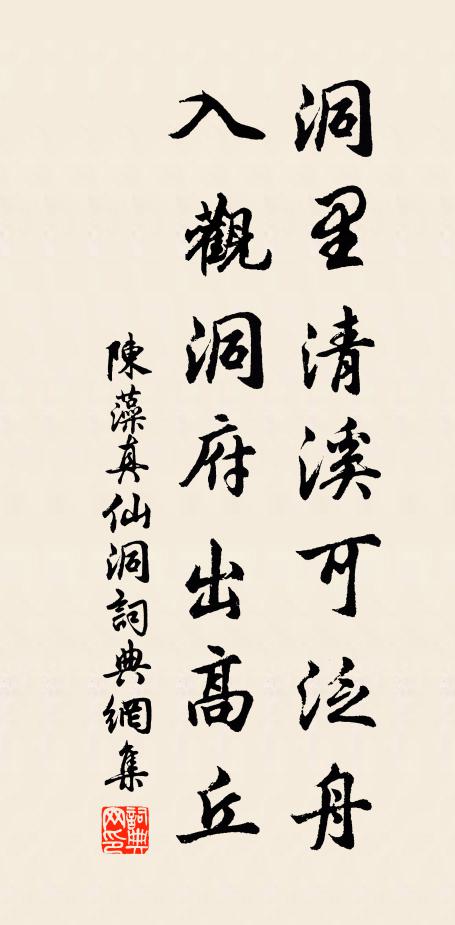 洞里清溪可泛舟
入觀洞府出高丘
陳藻真仙洞詞典網集
詞典网印